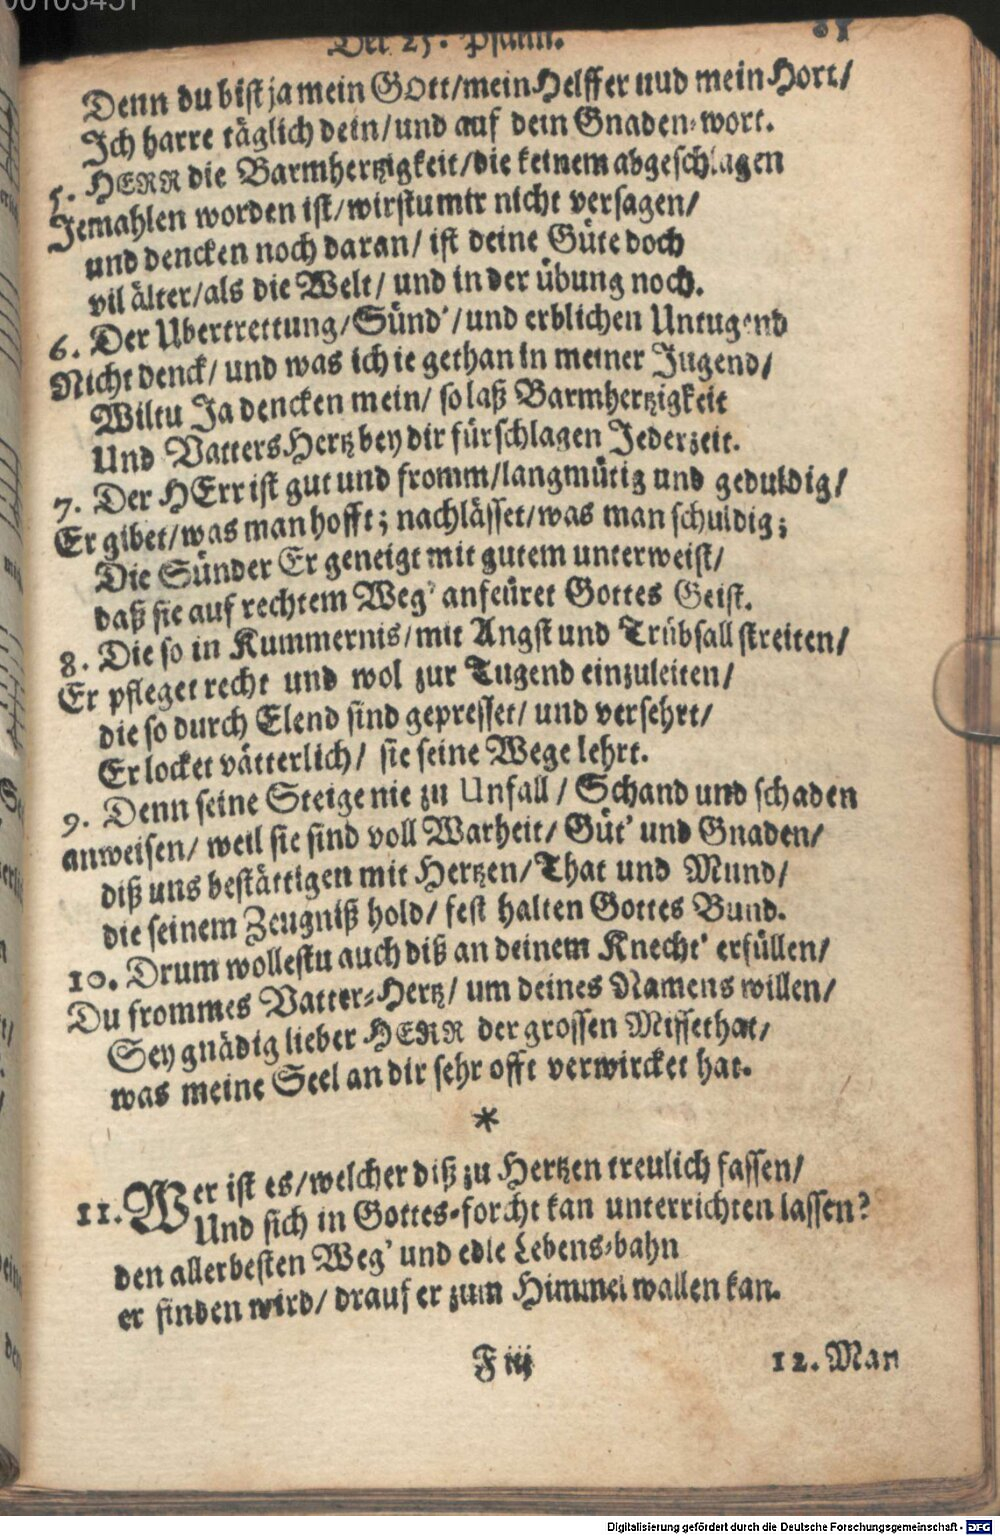 Der 25. Psalm.
Denn du bist ja mein GOtt/mein Helffer uud mein Hort/
Ich harre täglich dein/und auf dein Gnaden-wort.
5. HERR die Barmhertzigkeit/die keinem abgeschlagen
Jemahlen worden ist/wirstu mir nicht versagen/
und dencken noch daran/ ist deine Güte doch
vil älter/als die Welt/ und in der übung noch.
6. Der Ubertrettung/Sünd'/und erblichen Untugend
Nicht denck/ und was ich ie gethan in meiner Jugend/
Wiltu Ja dencken mein/ so laß Barmhertzigkeit
Und Vatters Hertz bey dir fürschlagen Jederzeit.
7. Der HErr ist gut und fromm/langmütig und geduldig/
Er gibet/was man hofft; nachlässet/was man schuldig;
Die Sünder Er geneigt mit gutem unterweist/
daß sie auf rechtem Weg' anfeüret Gottes Geist.
8. Die so in Kummernis/mit Angst und Trübsall streiten/
Er pfleget recht und wol zur Tugend einzuleiten/
die so durch Elend sind gepresset/ und versehrt/
Er locket vätterlich/ sie seine Wege lehrt.
9. Denn seine Steige nie zu Unfall/ Schand und schaden
anweisen/ weil sie sind voll Warheit/ Güt' und Gnaden/
diß uns bestättigen mit Hertzen/That und Mund/
die seinem Zeugniß hold/ fest halten Gottes Bund.
10. Drum wollestu auch diß an deinem Knecht' erfüllen/
Du frommes Vatter-Hertz/ um deines Namens willen/
Sey gnädig lieber HERR der grossen Missethat/
was meine Seel an dir sehr offt verwircket hat.
*
11. Wer ist es/welcher diß zu Hertzen treulich fassen/
Und sich in Gottes-forcht kan unterrichten lassen?
den allerbesten Weg' und edle Lebens-bahn
er finden wird/ drauf er zum Himmel wallen kan.
F iij
12. Man
Digitalisierung gefördert durch die Deutsche Forschungsgemeinschaft - DFG